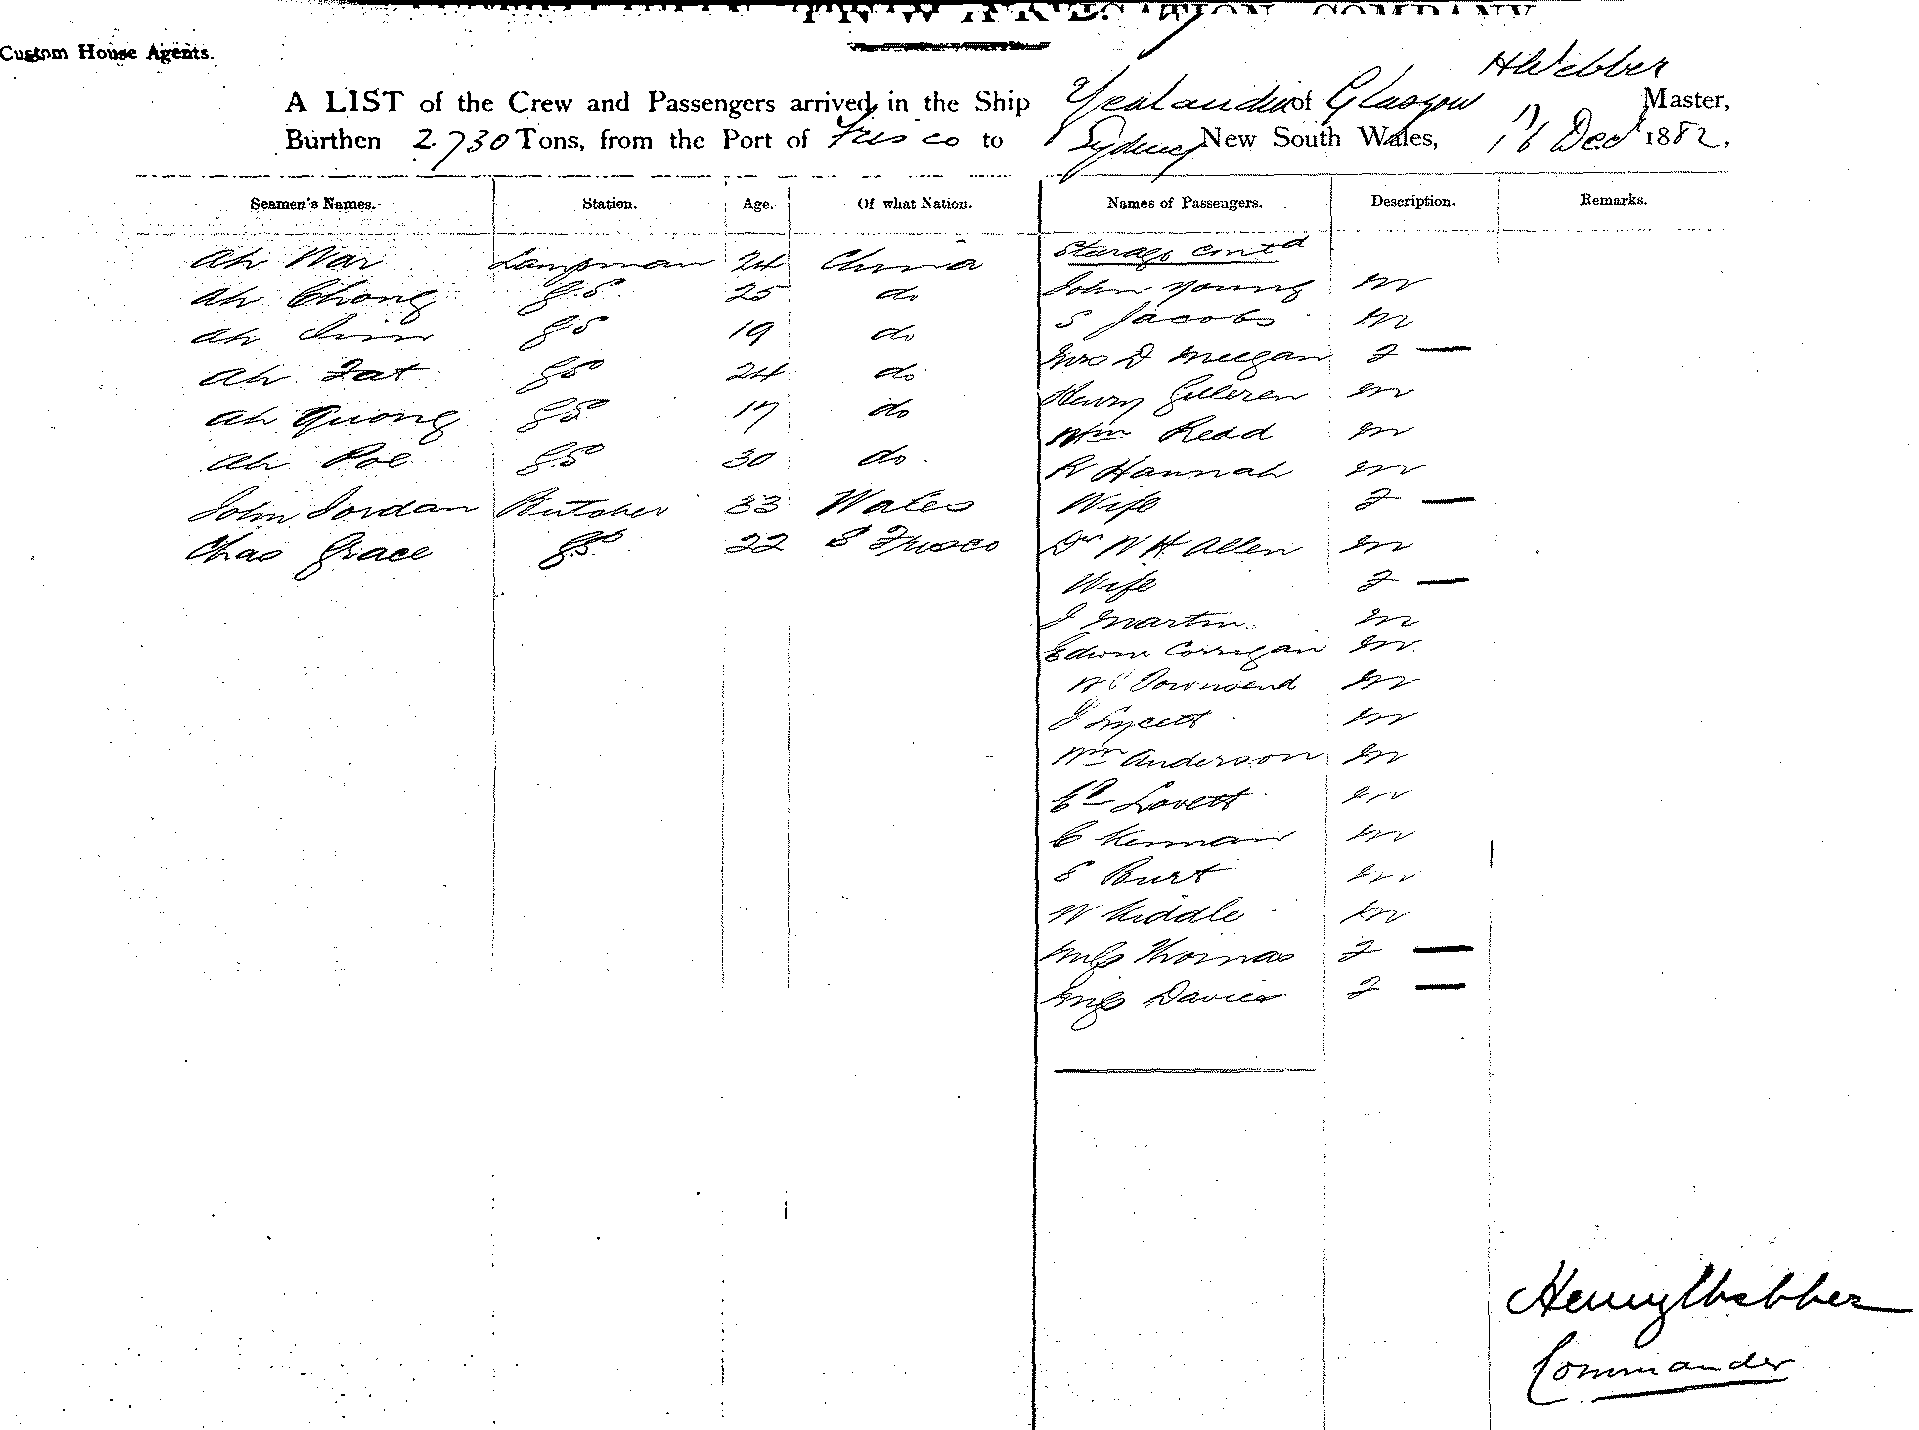 Custom House Agents.
H Webber
A LIST of the Crew and Passengers arrived in the Ship Zealandia of Glasgow Master,
Burthen 2730 Tons, from the Port of Frisco to Sydney New South Wales, 16 Dec 1882.
Seamen's Names. Station. Age. Of what Nation. Names of Passengers. Description. Remarks.
Steerage contd
Ah War Lampman 24 China
Ah Chong 25 do John Young m
Ah 19 do S Jacobs m
Ah Fat 24 do Mrs D Meegan f —
Ah Quong 17 do Henry m
Ah Poe 30 do Wm Redd m
R Hannah m
John Jordan Butcher 33 Wales Wife f —
Chas Grace 22 S Frisco Dr W H Allen m
Wife f —
J Martin m
Edwin Corrigan m
W C Townsend m
J Lycett m
Wm Anderson m
Lovett m
C m
S Burt m
W Kiddle m
Miss Thomas f —
Miss Davies f —
Henry Webber
Commander